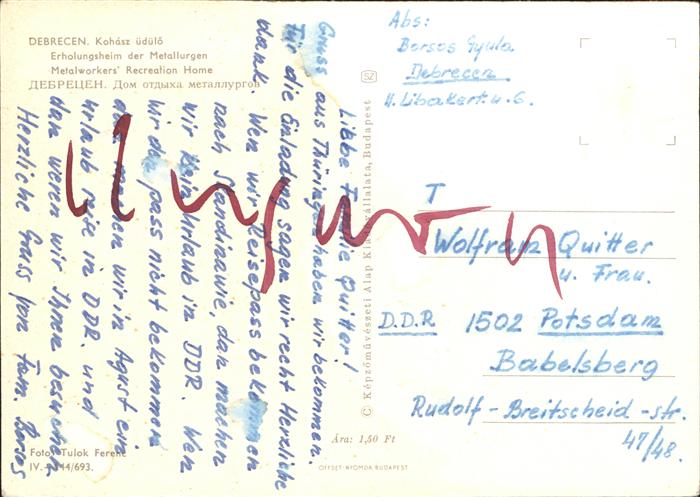 DEBRECEN. Kohász üdülő
Erholungsheim der Metallurgen
Metalworkers' Recreation Home
ДЕБРЕЦЕН. Дом отдыха металлургов
Libbe Familie Quitter!
Gruss aus Thüringen haben wir bekommen.
Für die Einladug sagen wir recht Herzliche
dank. Wen wir Reisepass bekommen
nach Skandinawie, dan machen
wir kein Urlaub in DDR. Wen
wir den pass nicht bekommen
dan machen wir in Agust ein
urlaub reise in DDR. und
dan weren wir Ihnen besuchen
Herzliche Grass von Fam. Borsos
Ungarn
Foto: Tulok Ferenc
SZ
© Képzőművészeti Alap Kiadóvállalata, Budapest
Ára: 1,50 Ft
OFFSET-NYOMDA BUDAPEST
Abs:
Borsos Gyula
Debrecen
u. 6.
T
Wolfram Quitter
u. Frau.
D.D.R 1502 Potsdam
Babelsberg
Rudolf - Breitscheid - str.
47/48.